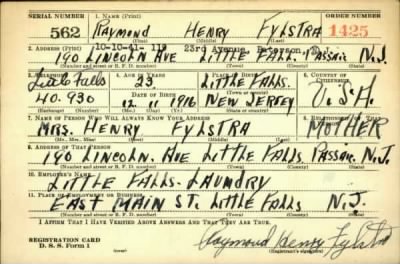 SERIAL NUMBER 1. NAME (Print) ORDER NUMBER
562 RAYMOND HENRY FYLSTRA 1425
(First) (Middle) (Last)
2. ADDRESS (Print) 10-10-41- 119 23rd Avenue, Paterson,
190 LINCOLN AVE LITTLE FALLS PASSAIC N.J.
(Number and street or R. F. D. number) (Town) (County) (State)
3. TELEPHONE 4. AGE IN YEARS 5. PLACE OF BIRTH 6. COUNTRY OF CITIZENSHIP
Little Falls 23 LITTLE FALLS.
(Town or county)
40.930 12 11 1916 NEW JERSEY U.S.A.
(Exchange) (Number) (Mo.) (Day) (Yr.) (State or country)
7. NAME OF PERSON WHO WILL ALWAYS KNOW YOUR ADDRESS 8. RELATIONSHIP OF THAT PERSON
MRS. HENRY FYLSTRA MOTHER
(Mr., Mrs., Miss) (First) (Middle) (Last)
9. ADDRESS OF THAT PERSON
190 LINCOLN. AVE LITTLE FALLS PASSAIC N.J.
(Number and street or R. F. D. number) (Town) (County) (State)
10. EMPLOYER'S NAME
LITTLE FALLS. LAUNDRY
11. PLACE OF EMPLOYMENT OR BUSINESS
EAST MAIN ST. LITTLE FALLS N.J.
(Number and street or R. F. D. number) (Town) (County) (State)
I AFFIRM THAT I HAVE VERIFIED ABOVE ANSWERS AND THAT THEY ARE TRUE.
REGISTRATION CARD
D. S. S. Form 1 Raymond Henry Fylstra
(Registrant's signature)